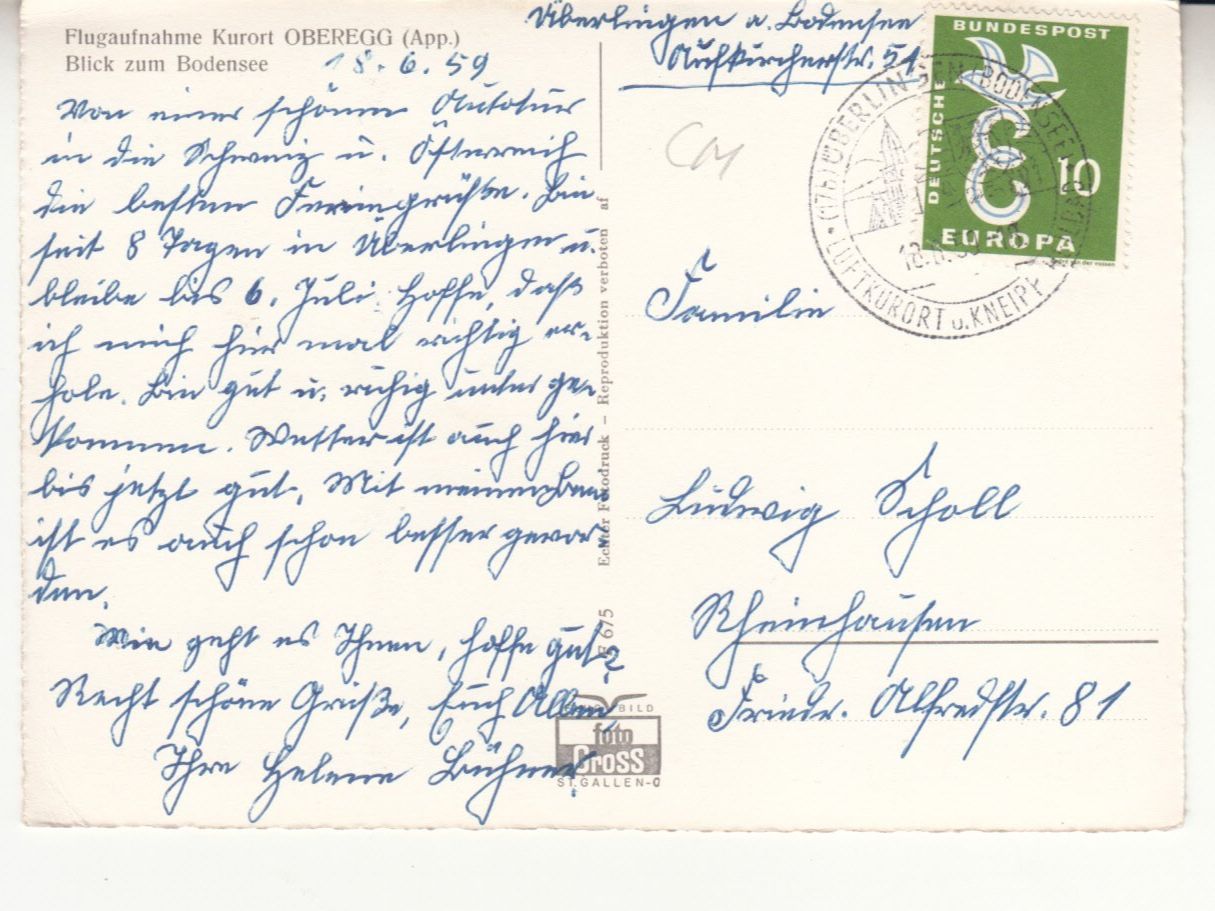 Flugaufnahme Kurort OBEREGG (App.)
Blick zum Bodensee
18. 6. 59
Von einer schönen Autotour
in die Schweiz u. Österreich
die besten Feriengrüße. Bin
seit 8 Tagen in Überlingen u.
bleibe bis 6. Juli. Hoffe, daß
ich mich hier mal richtig er-
hole. Bin gut u. ruhig unterge-
kommen. Wetter ist auch hier
bis jetzt gut. Mit meinem
ist es auch schon besser gewor
den.
Wie geht es Ihnen, hoffe gut?
Recht schöne Grüße, Euch Allen,
Ihre Helene Bühner
Überlingen a. Bodensee
Aufkircherstr. 51
BUNDESPOST
DEUTSCHE
10
EUROPA
(17b) ÜBERLINGEN BODENSEE
LUFTKURORT u. KNEIPP
Echter Fotodruck – Reproduktion verboten af
675
BILD
foto
Gross
ST. GALLEN-O
Familie
Ludwig Scholl
Rheinhausen
Friedr. Alfredstr. 81